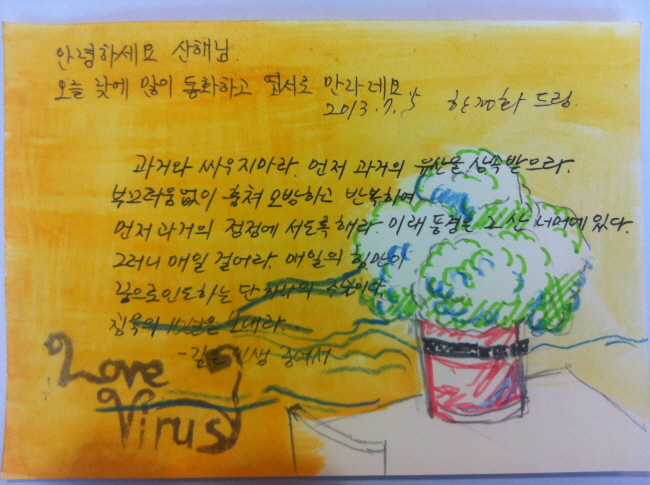 안녕하세요 산해님.
오늘 낮에 많이 통화하고 엽서로 만나네요
2013.7.5 한경화 드림.
과거와 싸우지마라. 먼저 과거의 유산을 상속받으라.
부끄러움없이 훔쳐 모방하고 반복하여
먼저 과거의 접점에 서도록해라 미래풍경은 그 산 너머에 있다.
그러니 매일 걸어라. 매일의 힘만이
꿈으로 인도하는 단 하나의 수단이다.
침묵의 100일을 보내라.
인생 중에서
Love
Virus